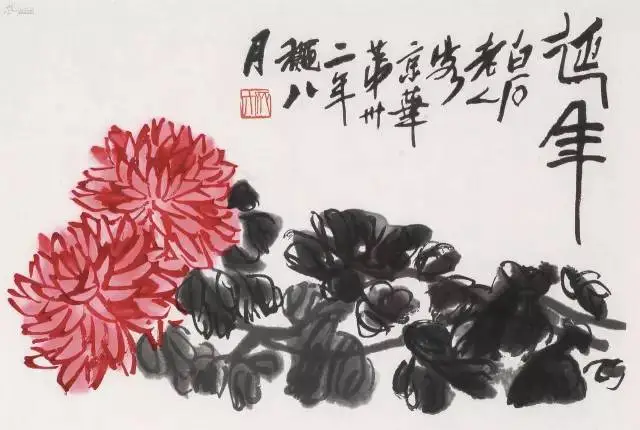 延年
白石
老人
客
京華
第卅
二年
題八
月